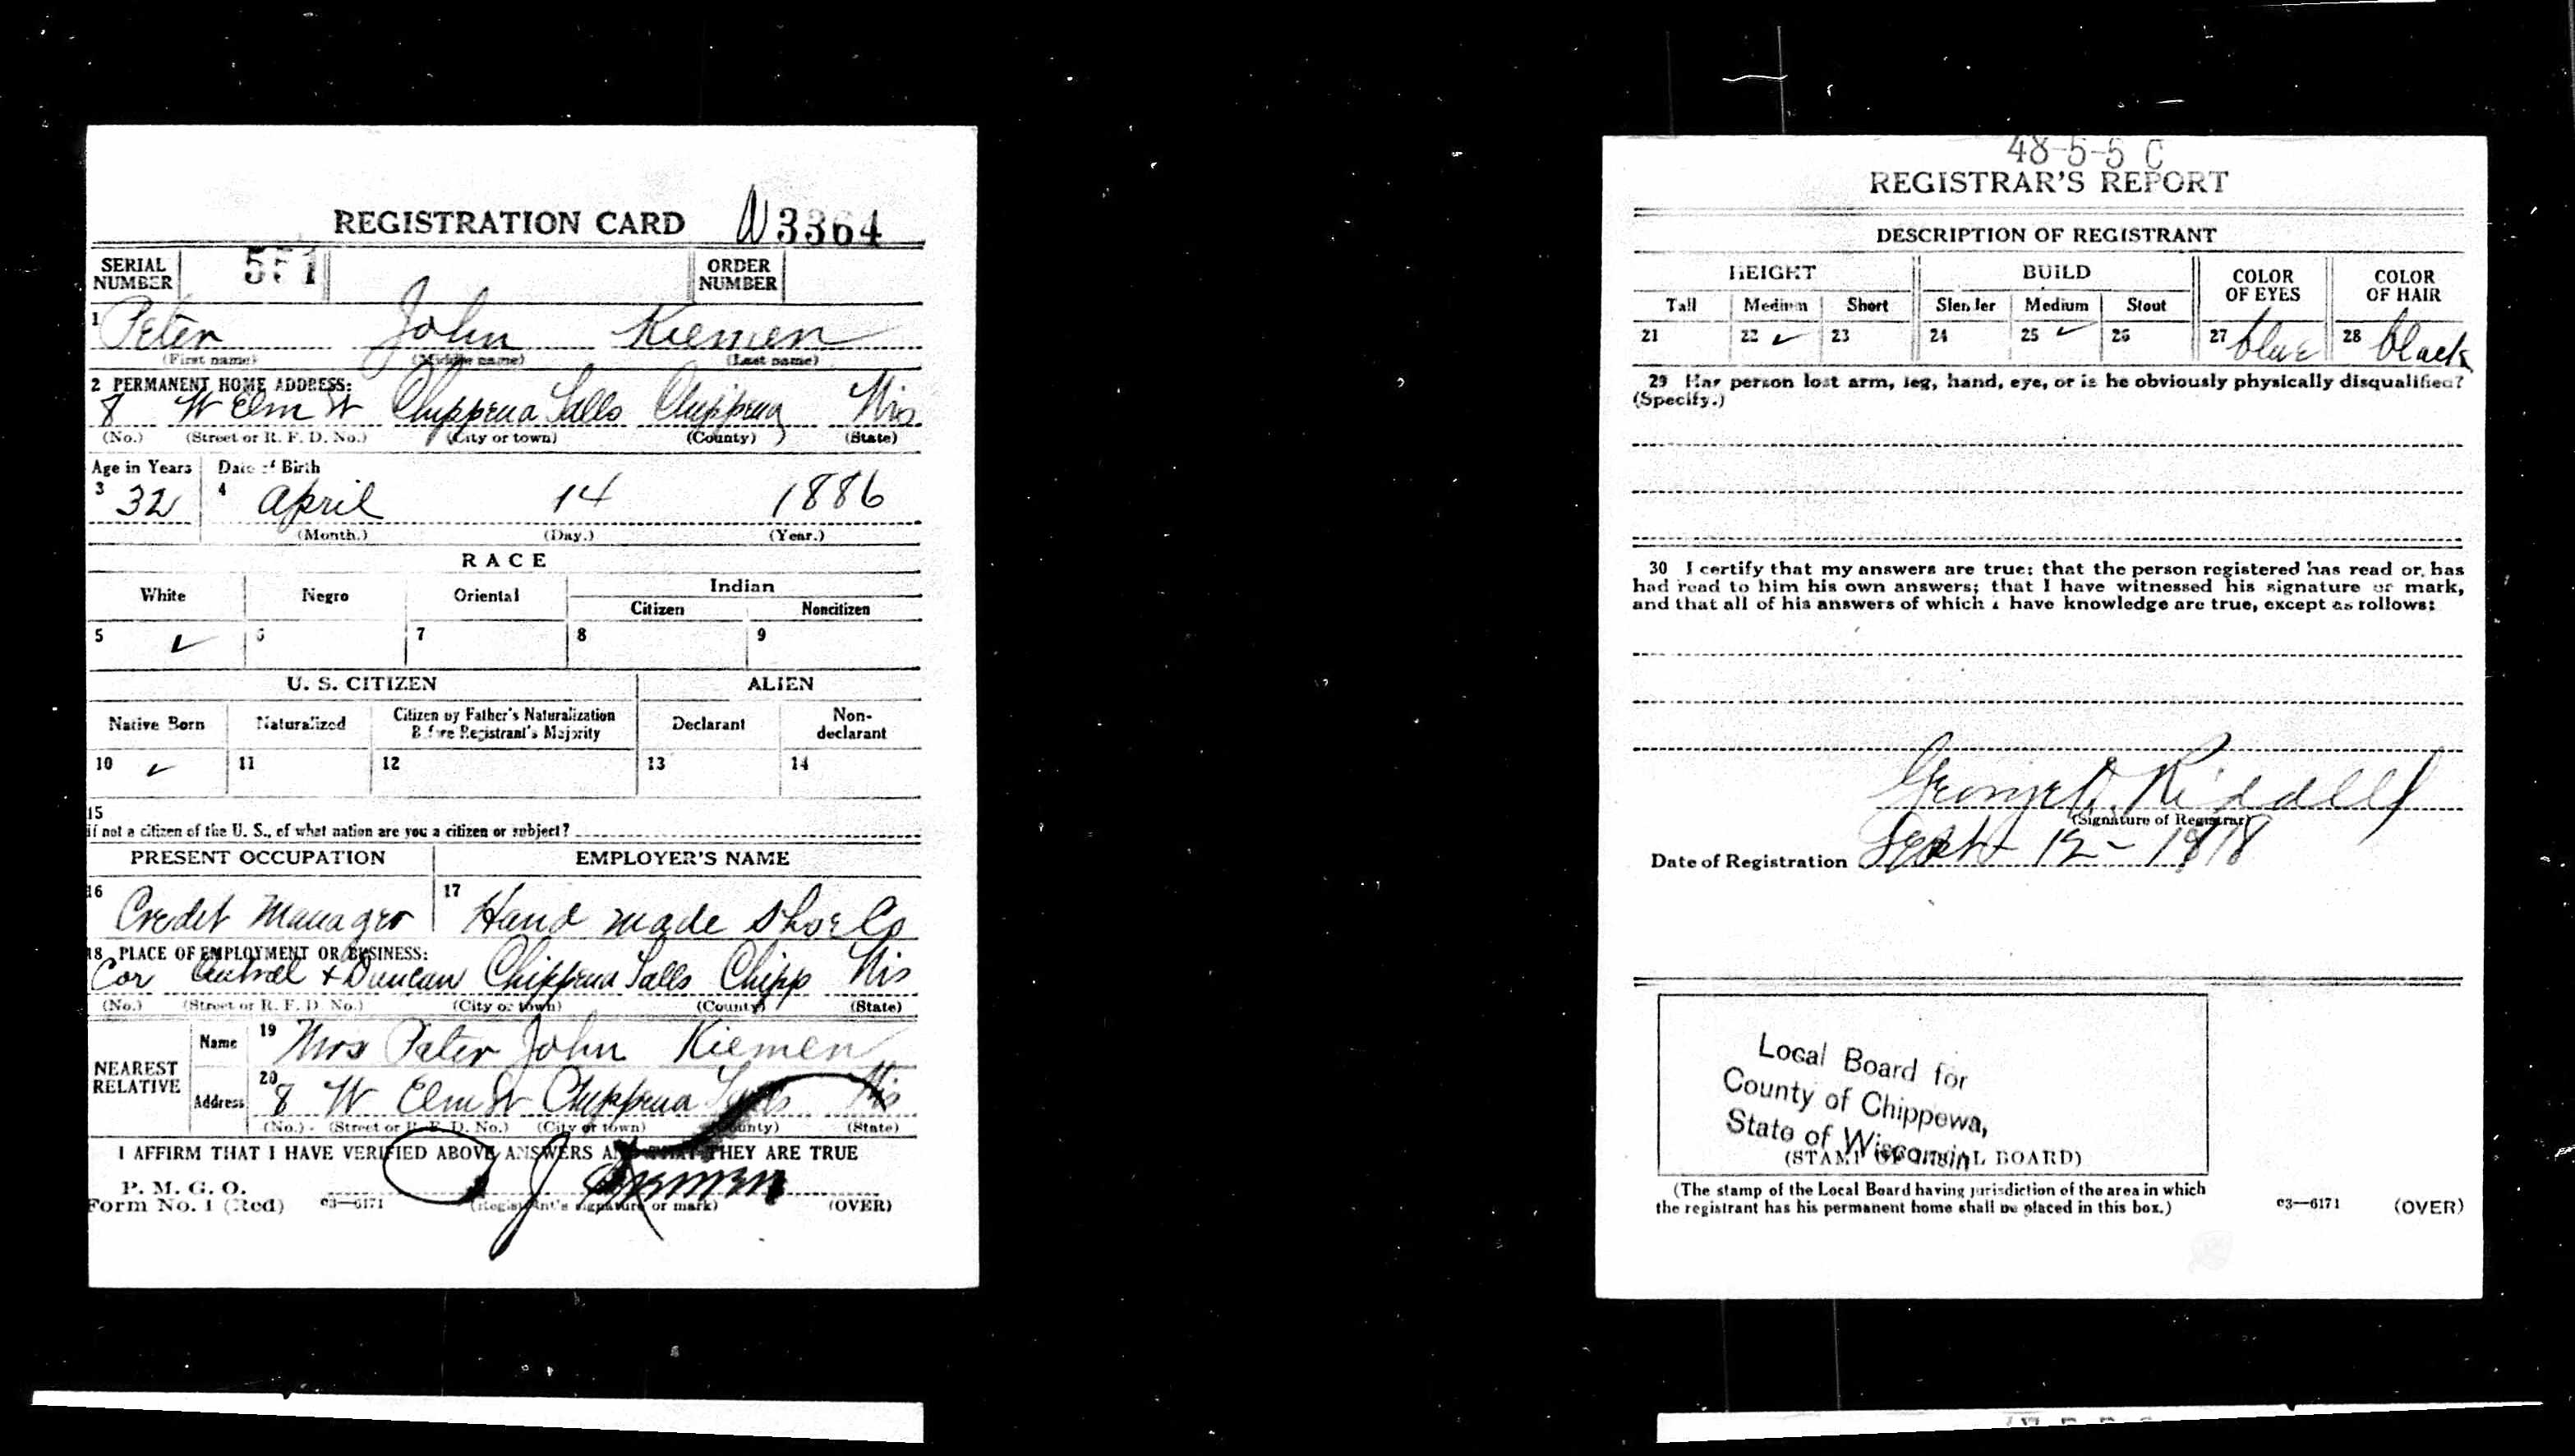 REGISTRATION CARD N 3364
SERIAL NUMBER 551 ORDER NUMBER
1 Peter John Kiemen
(First name) (Middle name) (Last name)
2 PERMANENT HOME ADDRESS:
8 W Elm St Chippewa Falls Chippewa Wis
(No.) (Street or R. F. D. No.) (City or town) (County) (State)
Age in Years Date of Birth
3 32 4 April 14 1886
(Month.) (Day.) (Year.)
RACE
White Negro Oriental Indian
Citizen Noncitizen
5 ✓ 6 7 8 9
U. S. CITIZEN ALIEN
Native Born Naturalized Citizen by Father's Naturalization Before Registrant's Majority Declarant Non-declarant
10 ✓ 11 12 13 14
15
If not a citizen of the U. S., of what nation are you a citizen or subject?
PRESENT OCCUPATION EMPLOYER'S NAME
16 Credit Manager 17 Hand made Shoe Co
18 PLACE OF EMPLOYMENT OR BUSINESS:
Cor Central + Duncan Chippewa Falls Chipp Wis
(No.) (Street or R. F. D. No.) (City or town) (County) (State)
NEAREST RELATIVE
Name 19 Mrs Peter John Kiemen
Address 20 8 W Elm St Chippewa Falls Wis
(No.) (Street or R. F. D. No.) (City or town) (County) (State)
I AFFIRM THAT I HAVE VERIFIED ABOVE ANSWERS AND THAT THEY ARE TRUE
P. M. G. O.
Form No. 1 (Red) c3—6171 (Registrant's signature or mark) (OVER)
J Kiemen
48-5-5 C
REGISTRAR'S REPORT
DESCRIPTION OF REGISTRANT
HEIGHT BUILD COLOR OF EYES COLOR OF HAIR
Tall Medium Short Slender Medium Stout
21 22 ✓ 23 24 25 ✓ 26 27 blue 28 black
29 Has person lost arm, leg, hand, eye, or is he obviously physically disqualified?
(Specify.)
30 I certify that my answers are true; that the person registered has read or has
had read to him his own answers; that I have witnessed his signature or mark,
and that all of his answers of which I have knowledge are true, except as follows:
George Riddell
(Signature of Registrar)
Date of Registration Sept 12 - 1918
Local Board for
County of Chippewa,
State of Wisconsin
(STAMP OF LOCAL BOARD)
(The stamp of the Local Board having jurisdiction of the area in which
the registrant has his permanent home shall be placed in this box.)
c3—6171 (OVER)